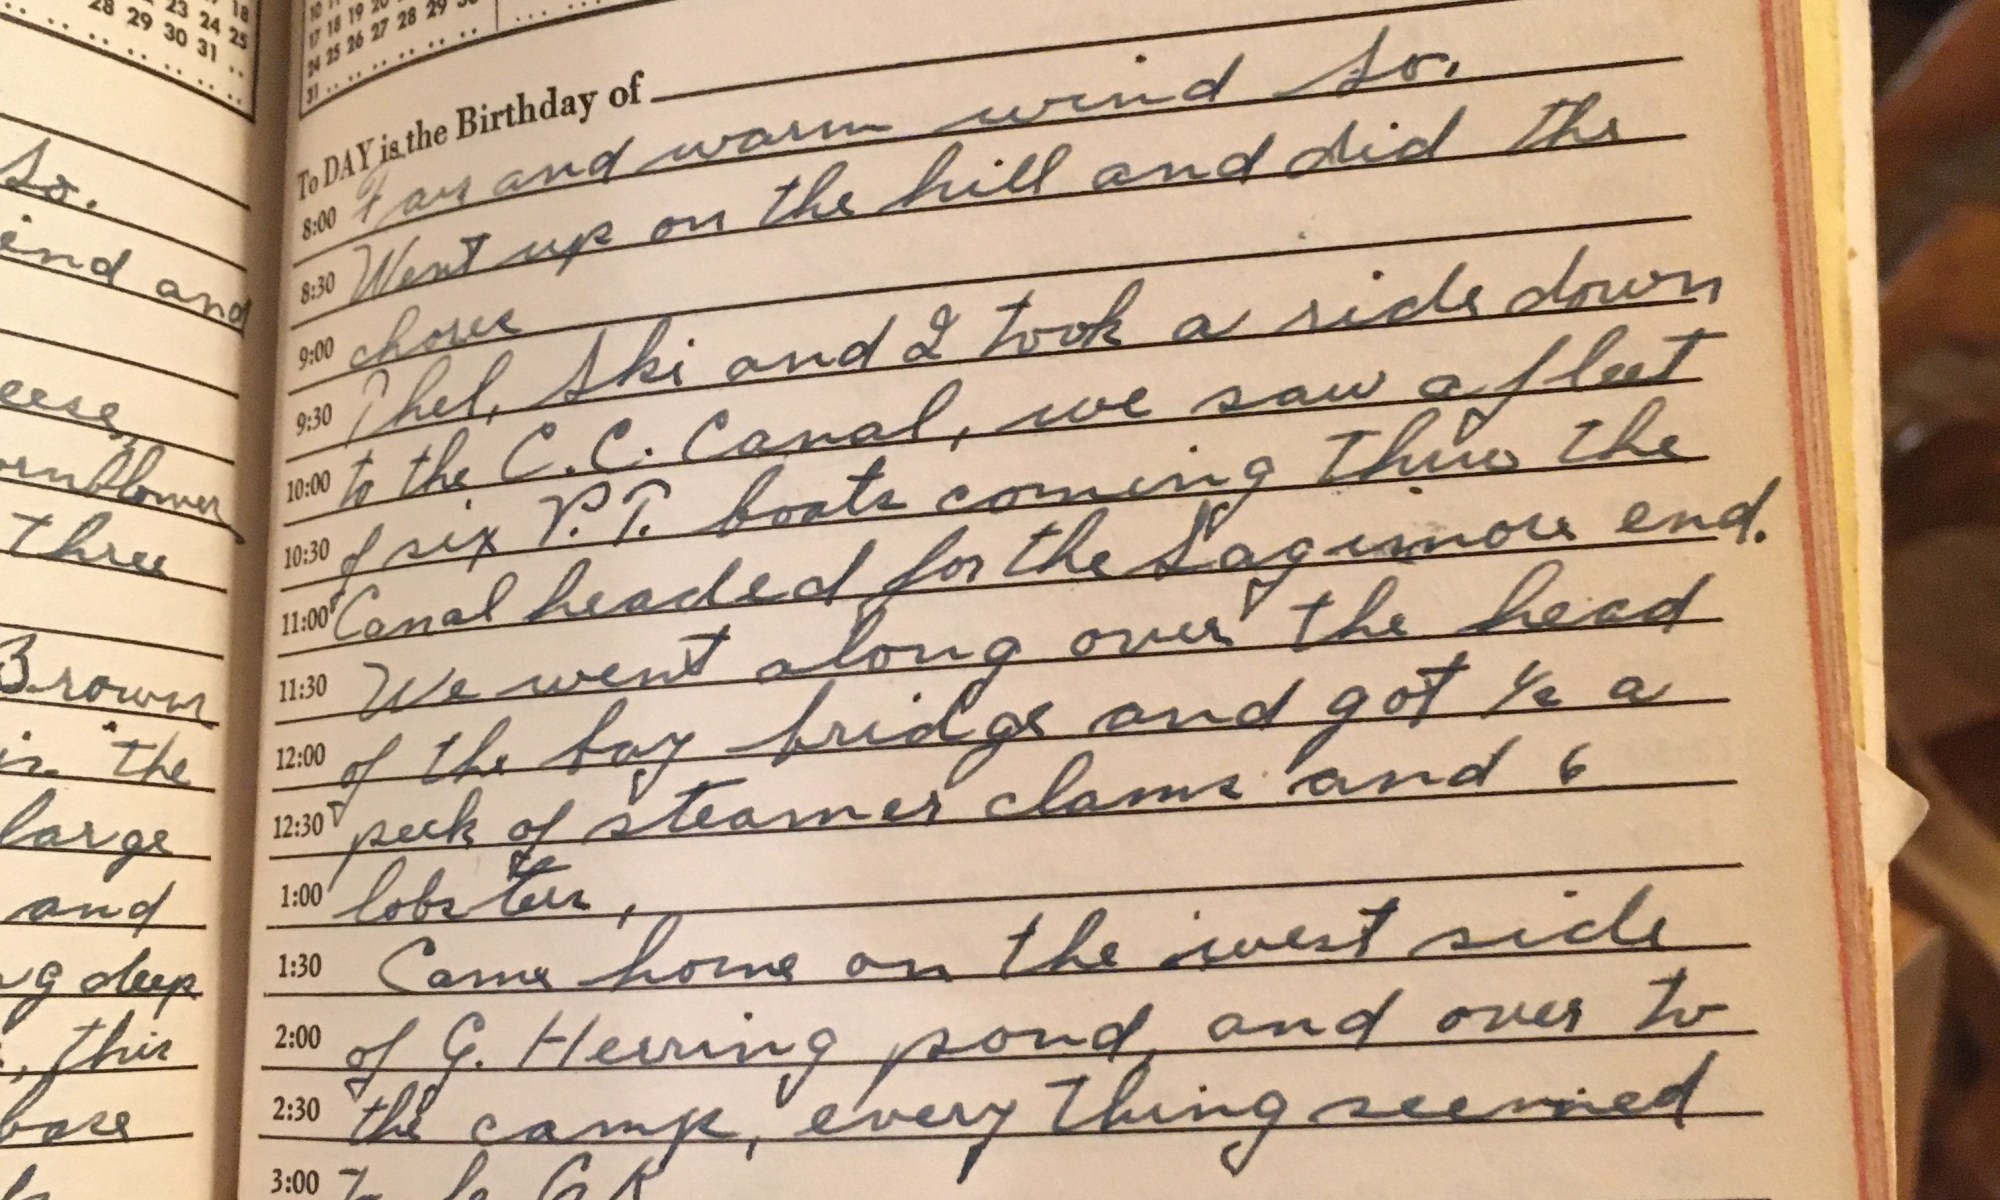 18
23 24 25
28 29 30 31 ..
so.
ind and
eese,
ornflower
three
Brown
in the
large
and
g deep
, this
base
10 11
17 18 19 20
24 25 26 27 28 29 30
31 .. .. .. .. ..
To DAY is the Birthday of
8:00 Fair and warm wind So.
8:30 Went up on the hill and did the
9:00 chores
9:30 Phel, Ski and I took a ride down
10:00 to the C.C. Canal, we saw a fleet
10:30 of six P.T. boats coming thru the
11:00 Canal headed for the Sagimore end.
11:30 We went along over the head
12:00 of the bay bridge and got 1/2 a
12:30 peck of steamer clams and 6
1:00 lobsters,
1:30 Came home on the west side
2:00 of G. Herring pond, and over to
2:30 the camp, every thing seemed
3:00 To be O.K.